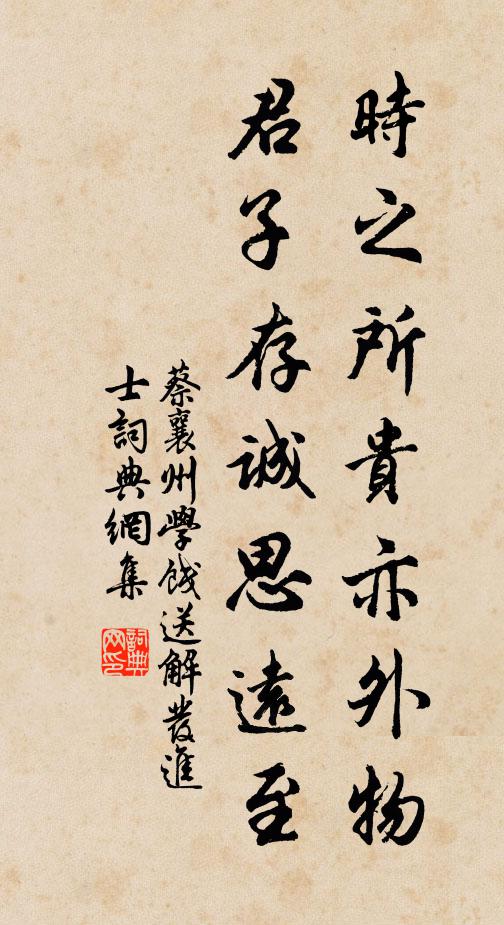 時之所貴亦外物
君子存誠思遠至
蔡襄州學餞送解發進
士詞典網集
詞典
网印